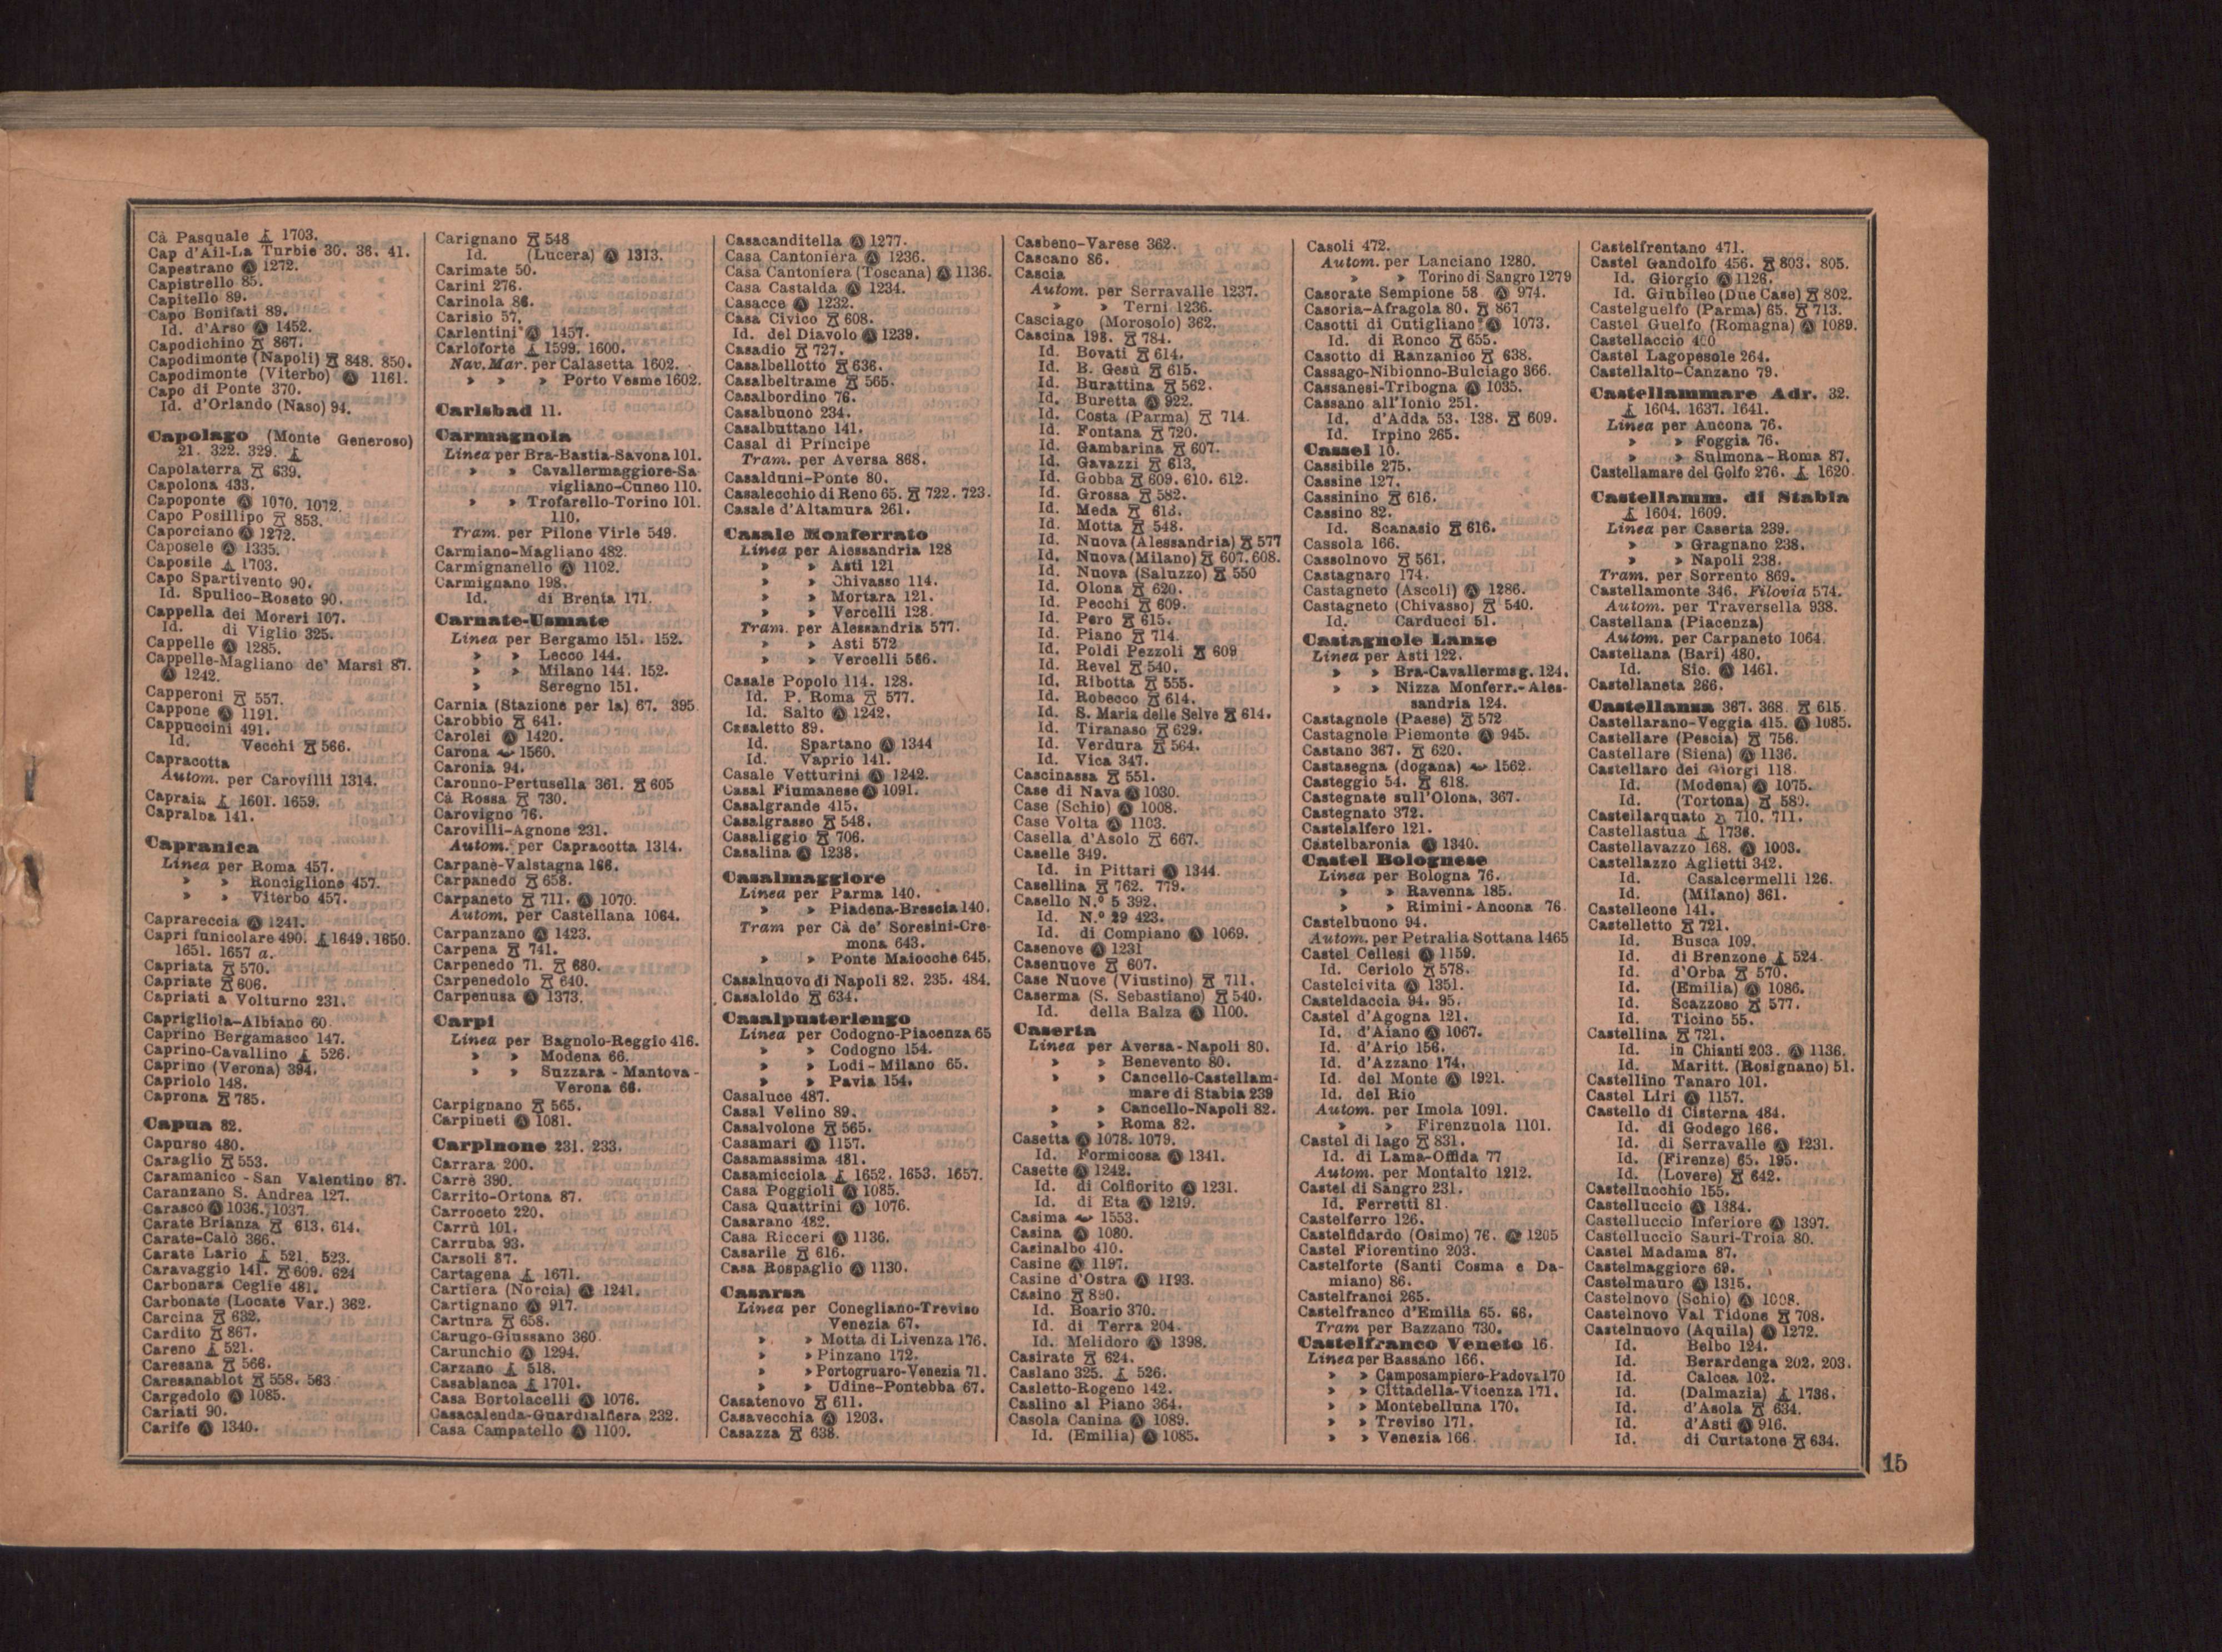 Cà Pasquale 1703.
Cap d'Ail-La Turbie 30. 36. 41.
Capestrano Ⓐ 1272.
Capistrello 85.
Capitello 89.
Capo Bonifati 89.
Id. d'Arso Ⓐ 1452.
Capodichino 867.
Capodimonte (Napoli) 848. 850.
Capodimonte (Viterbo) Ⓐ 1161.
Capo di Ponte 370.
Id. d'Orlando (Naso) 94.
Capolago (Monte Generoso)
21. 322. 329.
Capolaterra 639.
Capolona 433.
Capoponte Ⓐ 1070. 1072.
Capo Posillipo 853.
Caporciano Ⓐ 1272.
Caposele Ⓐ 1335.
Caposile 1703.
Capo Spartivento 90.
Id. Spulico-Roseto 90.
Cappella dei Moreri 107.
Id. di Viglio 325.
Cappelle Ⓐ 1285.
Cappelle-Magliano de' Marsi 87.
Ⓐ 1242.
Capperoni 557.
Cappone Ⓐ 1191.
Cappuccini 491.
Id. Vecchi 566.
Capracotta
Autom. per Carovilli 1314.
Capraia 1601. 1659.
Capralba 141.
Capranica
Linea per Roma 457.
» » Ronciglione 457.
» » Viterbo 457.
Caprareccia Ⓐ 1241.
Capri funicolare 490. 1649. 1650.
1651. 1657 a.
Capriata 570.
Capriate 606.
Capriati a Volturno 231.
Caprigliola-Albiano 60.
Caprino Bergamasco 147.
Caprino-Cavallino 526.
Caprino (Verona) 394.
Capriolo 148.
Caprona 785.
Capua 82.
Capurso 480.
Caraglio 553.
Caramanico - San Valentino 87.
Caranzano S. Andrea 127.
Carasco Ⓐ 1036. 1037.
Carate Brianza 613. 614.
Carate-Calò 366.
Carate Lario 521. 523.
Caravaggio 141. 609. 624
Carbonara Ceglie 481.
Carbonate (Locate Var.) 362.
Carcina 632.
Cardito 867.
Careno 521.
Caresana 566.
Caresanablot 558. 563
Cargedolo Ⓐ 1085.
Cariati 90.
Carife Ⓐ 1340.
Carignano 548
Id. (Lucera) Ⓐ 1313.
Carimate 50.
Carini 276.
Carinola 86.
Carisio 57.
Carlentini Ⓐ 1457.
Carloforte 1599. 1600.
Nav. Mar. per Calasetta 1602.
» » » Porto Vesme 1602.
Carlsbad 11.
Carmagnola
Linea per Bra-Bastia-Savona 101.
» » Cavallermaggiore-Sa
vigliano-Cuneo 110.
» » Trofarello-Torino 101.
110.
Tram. per Pilone Virle 549.
Carmiano-Magliano 482.
Carmignanello Ⓐ 1102.
Carmignano 198.
Id. di Brenta 171.
Carnate-Usmate
Linea per Bergamo 151. 152.
» » Lecco 144.
» » Milano 144. 152.
» Seregno 151.
Carnia (Stazione per la) 67. 395
Carobbio 641.
Carolei Ⓐ 1420.
Carona 1560.
Caronia 94.
Caronno-Pertusella 361. 605
Cà Rossa 730.
Carovigno 76.
Carovilli-Agnone 231.
Autom. per Capracotta 1314.
Carpanè-Valstagna 166.
Carpanedo 658.
Carpaneto 711. Ⓐ 1070.
Autom. per Castellana 1064.
Carpanzano Ⓐ 1423.
Carpena 741.
Carpenedo 71. 680.
Carpenedolo 640.
Carpenusa Ⓐ 1373.
Carpi
Linea per Bagnolo-Reggio 416.
» » Modena 66.
» » Suzzara - Mantova -
Verona 66.
Carpignano 565.
Carpineti Ⓐ 1081.
Carpinone 231. 233.
Carrara 200.
Carrè 390.
Carrito-Ortona 87.
Carroceto 220.
Carrù 101.
Carruba 93.
Carsoli 87.
Cartagena 1671.
Cartiera (Norcia) Ⓐ 1241.
Cartignano Ⓐ 917.
Cartura 658.
Carugo-Giussano 360.
Carunchio Ⓐ 1294.
Carzano 518.
Casablanca 1701.
Casa Bortolacelli Ⓐ 1076.
Casacalenda-Guardialfiera 232.
Casa Campatello Ⓐ 1100.
Casacanditella Ⓐ 1277.
Casa Cantoniera Ⓐ 1236.
Casa Cantoniera (Toscana) Ⓐ 1136.
Casa Castalda Ⓐ 1234.
Casacce Ⓐ 1232.
Casa Civico 608.
Id. del Diavolo Ⓐ 1239.
Casadio 727.
Casalbellotto 636.
Casalbeltrame 565.
Casalbordino 76.
Casalbuono 234.
Casalbuttano 141.
Casal di Principe
Tram. per Aversa 868.
Casalduni-Ponte 80.
Casalecchio di Reno 65. 722. 723.
Casale d'Altamura 261.
Casale Monferrato
Linea per Alessandria 128
» » Asti 121
» » Chivasso 114.
» » Mortara 121.
» » Vercelli 128.
Tram. per Alessandria 577.
» » Asti 572
» » Vercelli 566.
Casale Popolo 114. 128.
Id. P. Roma 577.
Id. Salto Ⓐ 1242.
Casaletto 89.
Id. Spartano Ⓐ 1344
Id. Vaprio 141.
Casale Vetturini Ⓐ 1242.
Casal Fiumanese Ⓐ 1091.
Casalgrande 415.
Casalgrasso 548.
Casaliggio 706.
Casalina Ⓐ 1238.
Casalmaggiore
Linea per Parma 140.
» » Piadena-Brescia 140.
Tram per Cà de' Soresini-Cre-
mona 643.
» » Ponte Maiocche 645.
Casalnuovo di Napoli 82. 235. 484.
Casaloldo 634.
Casalpusterlengo
Linea per Codogno-Piacenza 65
» » Codogno 154.
» » Lodi - Milano 65.
» » Pavia 154.
Casaluce 487.
Casal Velino 89.
Casalvolone 565.
Casamari Ⓐ 1157.
Casamassima 481.
Casamicciola 1652. 1653. 1657.
Casa Poggioli Ⓐ 1085.
Casa Quattrini Ⓐ 1076.
Casarano 482.
Casa Ricceri Ⓐ 1136.
Casarile 616.
Casa Rospaglio Ⓐ 1130.
Casarsa
Linea per Conegliano-Treviso
Venezia 67.
» » Motta di Livenza 176.
» » Pinzano 172.
» » Portogruaro-Venezia 71.
» » Udine-Pontebba 67.
Casatenovo 611.
Casavecchia Ⓐ 1203.
Casazza 638.
Casbeno-Varese 362.
Cascano 86.
Cascia
Autom. per Serravalle 1237.
» Terni 1236.
Casciago (Morosolo) 362.
Cascina 198. 784.
Id. Bovati 614.
Id. B. Gesù 615.
Id. Burattina 562.
Id. Buretta Ⓐ 922.
Id. Costa (Parma) 714.
Id. Fontana 720.
Id. Gambarina 607.
Id. Gavazzi 613.
Id. Gobba 609. 610. 612.
Id. Grossa 582.
Id. Meda 613.
Id. Motta 548.
Id. Nuova (Alessandria) 577
Id. Nuova (Milano) 607. 608.
Id. Nuova (Saluzzo) 550
Id. Olona 620.
Id. Pecchi 609.
Id. Pero 615.
Id. Piano 714.
Id. Poldi Pezzoli 609
Id. Revel 540.
Id. Ribotta 555.
Id. Robecco 614.
Id. S. Maria delle Selve 614.
Id. Tiranaso 629.
Id. Verdura 564.
Id. Vica 347.
Cascinassa 551.
Case di Nava Ⓐ 1030.
Case (Schio) Ⓐ 1008.
Case Volta Ⓐ 1103.
Casella d'Asolo 667.
Caselle 349.
Id. in Pittari Ⓐ 1344.
Casellina 762. 779.
Casello N.º 5 392.
Id. N.º 29 423.
Id. di Compiano Ⓐ 1069.
Casenove Ⓐ 1231
Casenuove 607.
Case Nuove (Viustino) 711.
Caserma (S. Sebastiano) 540.
Id. della Balza Ⓐ 1100.
Caserta
Linea per Aversa - Napoli 80.
» » Benevento 80.
» » Cancello-Castellam-
mare di Stabia 239
» » Cancello-Napoli 82.
» » Roma 82.
Casetta Ⓐ 1078. 1079.
Id. Formicosa Ⓐ 1341.
Casette Ⓐ 1242.
Id. di Colfiorito Ⓐ 1231.
Id. di Eta Ⓐ 1219.
Casima 1553.
Casina Ⓐ 1080.
Casinalbo 410.
Casine Ⓐ 1197.
Casine d'Ostra Ⓐ 1193.
Casino 890.
Id. Boario 370.
Id. di Terra 204.
Id. Melidoro Ⓐ 1398.
Casirate 624.
Caslano 325. 526.
Casletto-Rogeno 142.
Caslino al Piano 364.
Casola Canina Ⓐ 1089.
Id. (Emilia) Ⓐ 1085.
Casoli 472.
Autom. per Lanciano 1280.
» » Torino di Sangro 1279
Casorate Sempione 58 Ⓐ 974.
Casoria-Afragola 80. 867
Casotti di Cutigliano Ⓐ 1073.
Id. di Ronco 655.
Casotto di Ranzanico 638.
Cassago-Nibionno-Bulciago 366.
Cassanesi-Tribogna Ⓐ 1035.
Cassano all'Ionio 251.
Id. d'Adda 53. 138. 609.
Id. Irpino 265.
Cassel 10.
Cassibile 275.
Cassine 127.
Cassinino 616.
Cassino 82.
Id. Scanasio 616.
Cassola 166.
Cassolnovo 561.
Castagnaro 174.
Castagneto (Ascoli) Ⓐ 1286.
Castagneto (Chivasso) 540.
Id. Carducci 51.
Castagnole Lanze
Linea per Asti 122.
» » Bra-Cavallermag. 124.
» » Nizza Monferr.-Ales-
sandria 124.
Castagnole (Paese) 572
Castagnole Piemonte Ⓐ 945.
Castano 367. 620.
Castasegna (dogana) 1562.
Casteggio 54. 618.
Castegnate sull'Olona, 367.
Castegnato 372.
Castelalfero 121.
Castelbaronia Ⓐ 1340.
Castel Bolognese
Linea per Bologna 76.
» » Ravenna 185.
» » Rimini - Ancona 76.
Castelbuono 94.
Autom. per Petralia Sottana 1465
Castel Cellesi Ⓐ 1159.
Id. Ceriolo 578.
Castelcivita Ⓐ 1351.
Casteldaccia 94. 95.
Castel d'Agogna 121.
Id. d'Aiano Ⓐ 1067.
Id. d'Ario 156.
Id. d'Azzano 174.
Id. del Monte Ⓐ 1921.
Id. del Rio
Autom. per Imola 1091.
» » Firenzuola 1101.
Castel di lago 831.
Id. di Lama-Offida 77
Autom. per Montalto 1212.
Castel di Sangro 231.
Id. Ferretti 81.
Castelferro 126.
Castelfidardo (Osimo) 76. Ⓐ 1205
Castel Fiorentino 203.
Castelforte (Santi Cosma e Da-
miano) 86.
Castelfranci 265.
Castelfranco d'Emilia 65. 66.
Tram per Bazzano 730.
Castelfranco Veneto 16.
Linea per Bassano 166.
» » Camposampiero-Padova 170
» » Cittadella-Vicenza 171.
» » Montebelluna 170.
» » Treviso 171.
» » Venezia 166.
Castelfrentano 471.
Castel Gandolfo 456. 803. 805.
Id. Giorgio Ⓐ 1126.
Id. Giubileo (Due Case) 802.
Castelguelfo (Parma) 65. 713.
Castel Guelfo (Romagna) Ⓐ 1089.
Castellaccio
Castel Lagopesole 264.
Castellalto-Canzano 79.
Castellammare Adr. 32.
1604. 1637. 1641.
Linea per Ancona 76.
» » Foggia 76.
» » Sulmona - Roma 87.
Castellamare del Golfo 276. 1620.
Castellamm. di Stabia
1604. 1609.
Linea per Caserta 239.
» » Gragnano 238.
» » Napoli 238.
Tram. per Sorrento 869.
Castellamonte 346. Filovia 574.
Autom. per Traversella 938.
Castellana (Piacenza)
Autom. per Carpaneto 1064.
Castellana (Bari) 480.
Id. Sic. Ⓐ 1461.
Castellaneta 266.
Castellanza 367. 368. 615.
Castellarano-Veggia 415. Ⓐ 1085.
Castellare (Pescia) 756.
Castellare (Siena) Ⓐ 1136.
Castellaro dei Giorgi 118.
Id. (Modena) Ⓐ 1075.
Id. (Tortona) 580.
Castellarquato 710. 711.
Castellastua 1736.
Castellavazzo 168. Ⓐ 1003.
Castellazzo Aglietti 342.
Id. Casalcermelli 126.
Id. (Milano) 361.
Castelleone 141.
Castelletto 721.
Id. Busca 109.
Id. di Brenzone 524.
Id. d'Orba 570.
Id. (Emilia) Ⓐ 1086.
Id. Scazzoso 577.
Id. Ticino 55.
Castellina 721.
Id. in Chianti 203. Ⓐ 1136.
Id. Maritt. (Rosignano) 51.
Castellino Tanaro 101.
Castel Liri Ⓐ 1157.
Castello di Cisterna 484.
Id. di Godego 166.
Id. di Serravalle Ⓐ 1231.
Id. (Firenze) 65. 195.
Id. (Lovere) 642.
Castellucchio 155.
Castelluccio Ⓐ 1384.
Castelluccio Inferiore Ⓐ 1397.
Castelluccio Sauri-Troia 80.
Castel Madama 87.
Castelmaggiore 69.
Castelmauro Ⓐ 1315.
Castelnovo (Schio) Ⓐ 1008.
Castelnovo Val Tidone 708.
Castelnuovo (Aquila) Ⓐ 1272.
Id. Belbo 124.
Id. Berardenga 202. 203.
Id. Calcea 102.
Id. (Dalmazia) 1736.
Id. d'Asola 634.
Id. d'Asti Ⓐ 916.
Id. di Curtatone 634.
15